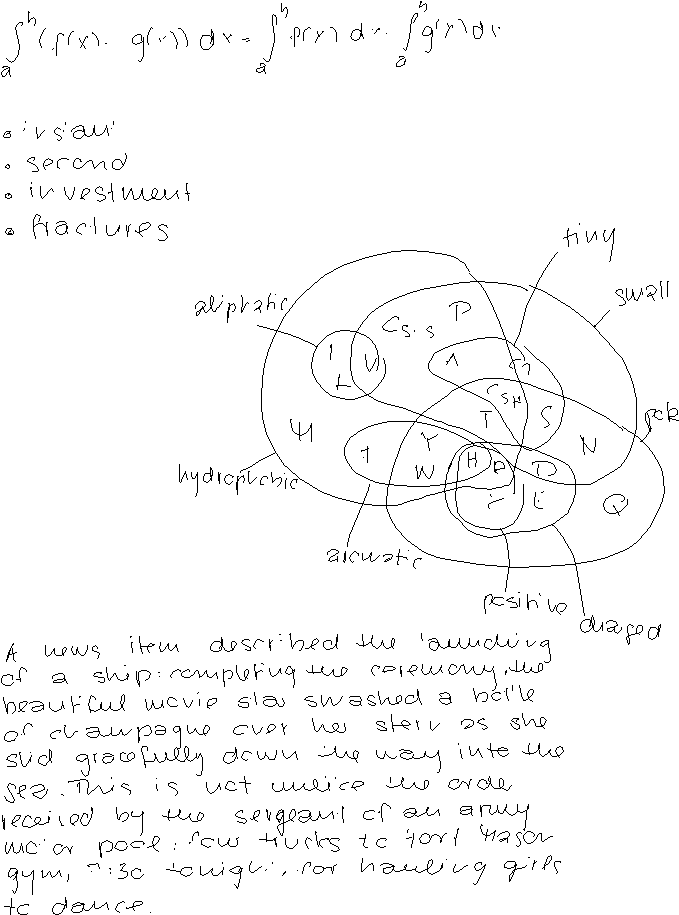 second
investment
fractures
tiny
small
aliphatic
P
C S-S
I
V
A
L
C S H
T
S
N
Y
W
H
D
E
Q
hydrophobic
aromatic
positive
charged
A news item described the launching
of a ship: completing the ceremony, the
beautiful movie star smashed a bottle
of champagne over her stern as she
slid gracefully down the way into the
sea. This is not unlike the order
received by the sergeant of an army
motor pool: four trucks to Fort Mason
gym, 7:30 tonight, for hauling girls
to dance.